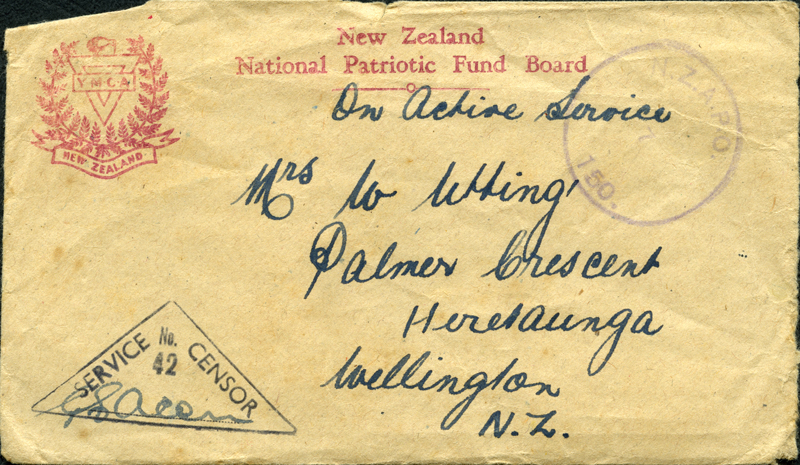 New Zealand
National Patriotic Fund Board
YMCA
NEW ZEALAND
On Active Service
N.Z.A.P.O
150.
Mrs W Utting
Palmer Crescent
Heretaunga
Wellington
N.Z.
SERVICE No. 42 CENSOR